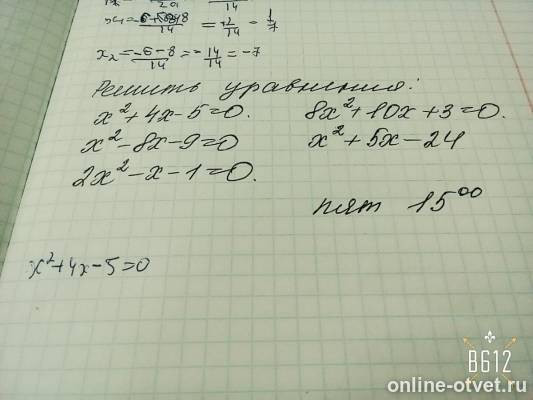 x₂ = -6-8/14 = -14/14 = -7
Решить уравнения:
x²+4x-5=0.
8x²+10x+3=0.
x²-8x-9=0
x²+5x-24
2x²-x-1=0.
пят 15⁰⁰
x²+4x-5=0
B612
online-otvet.ru